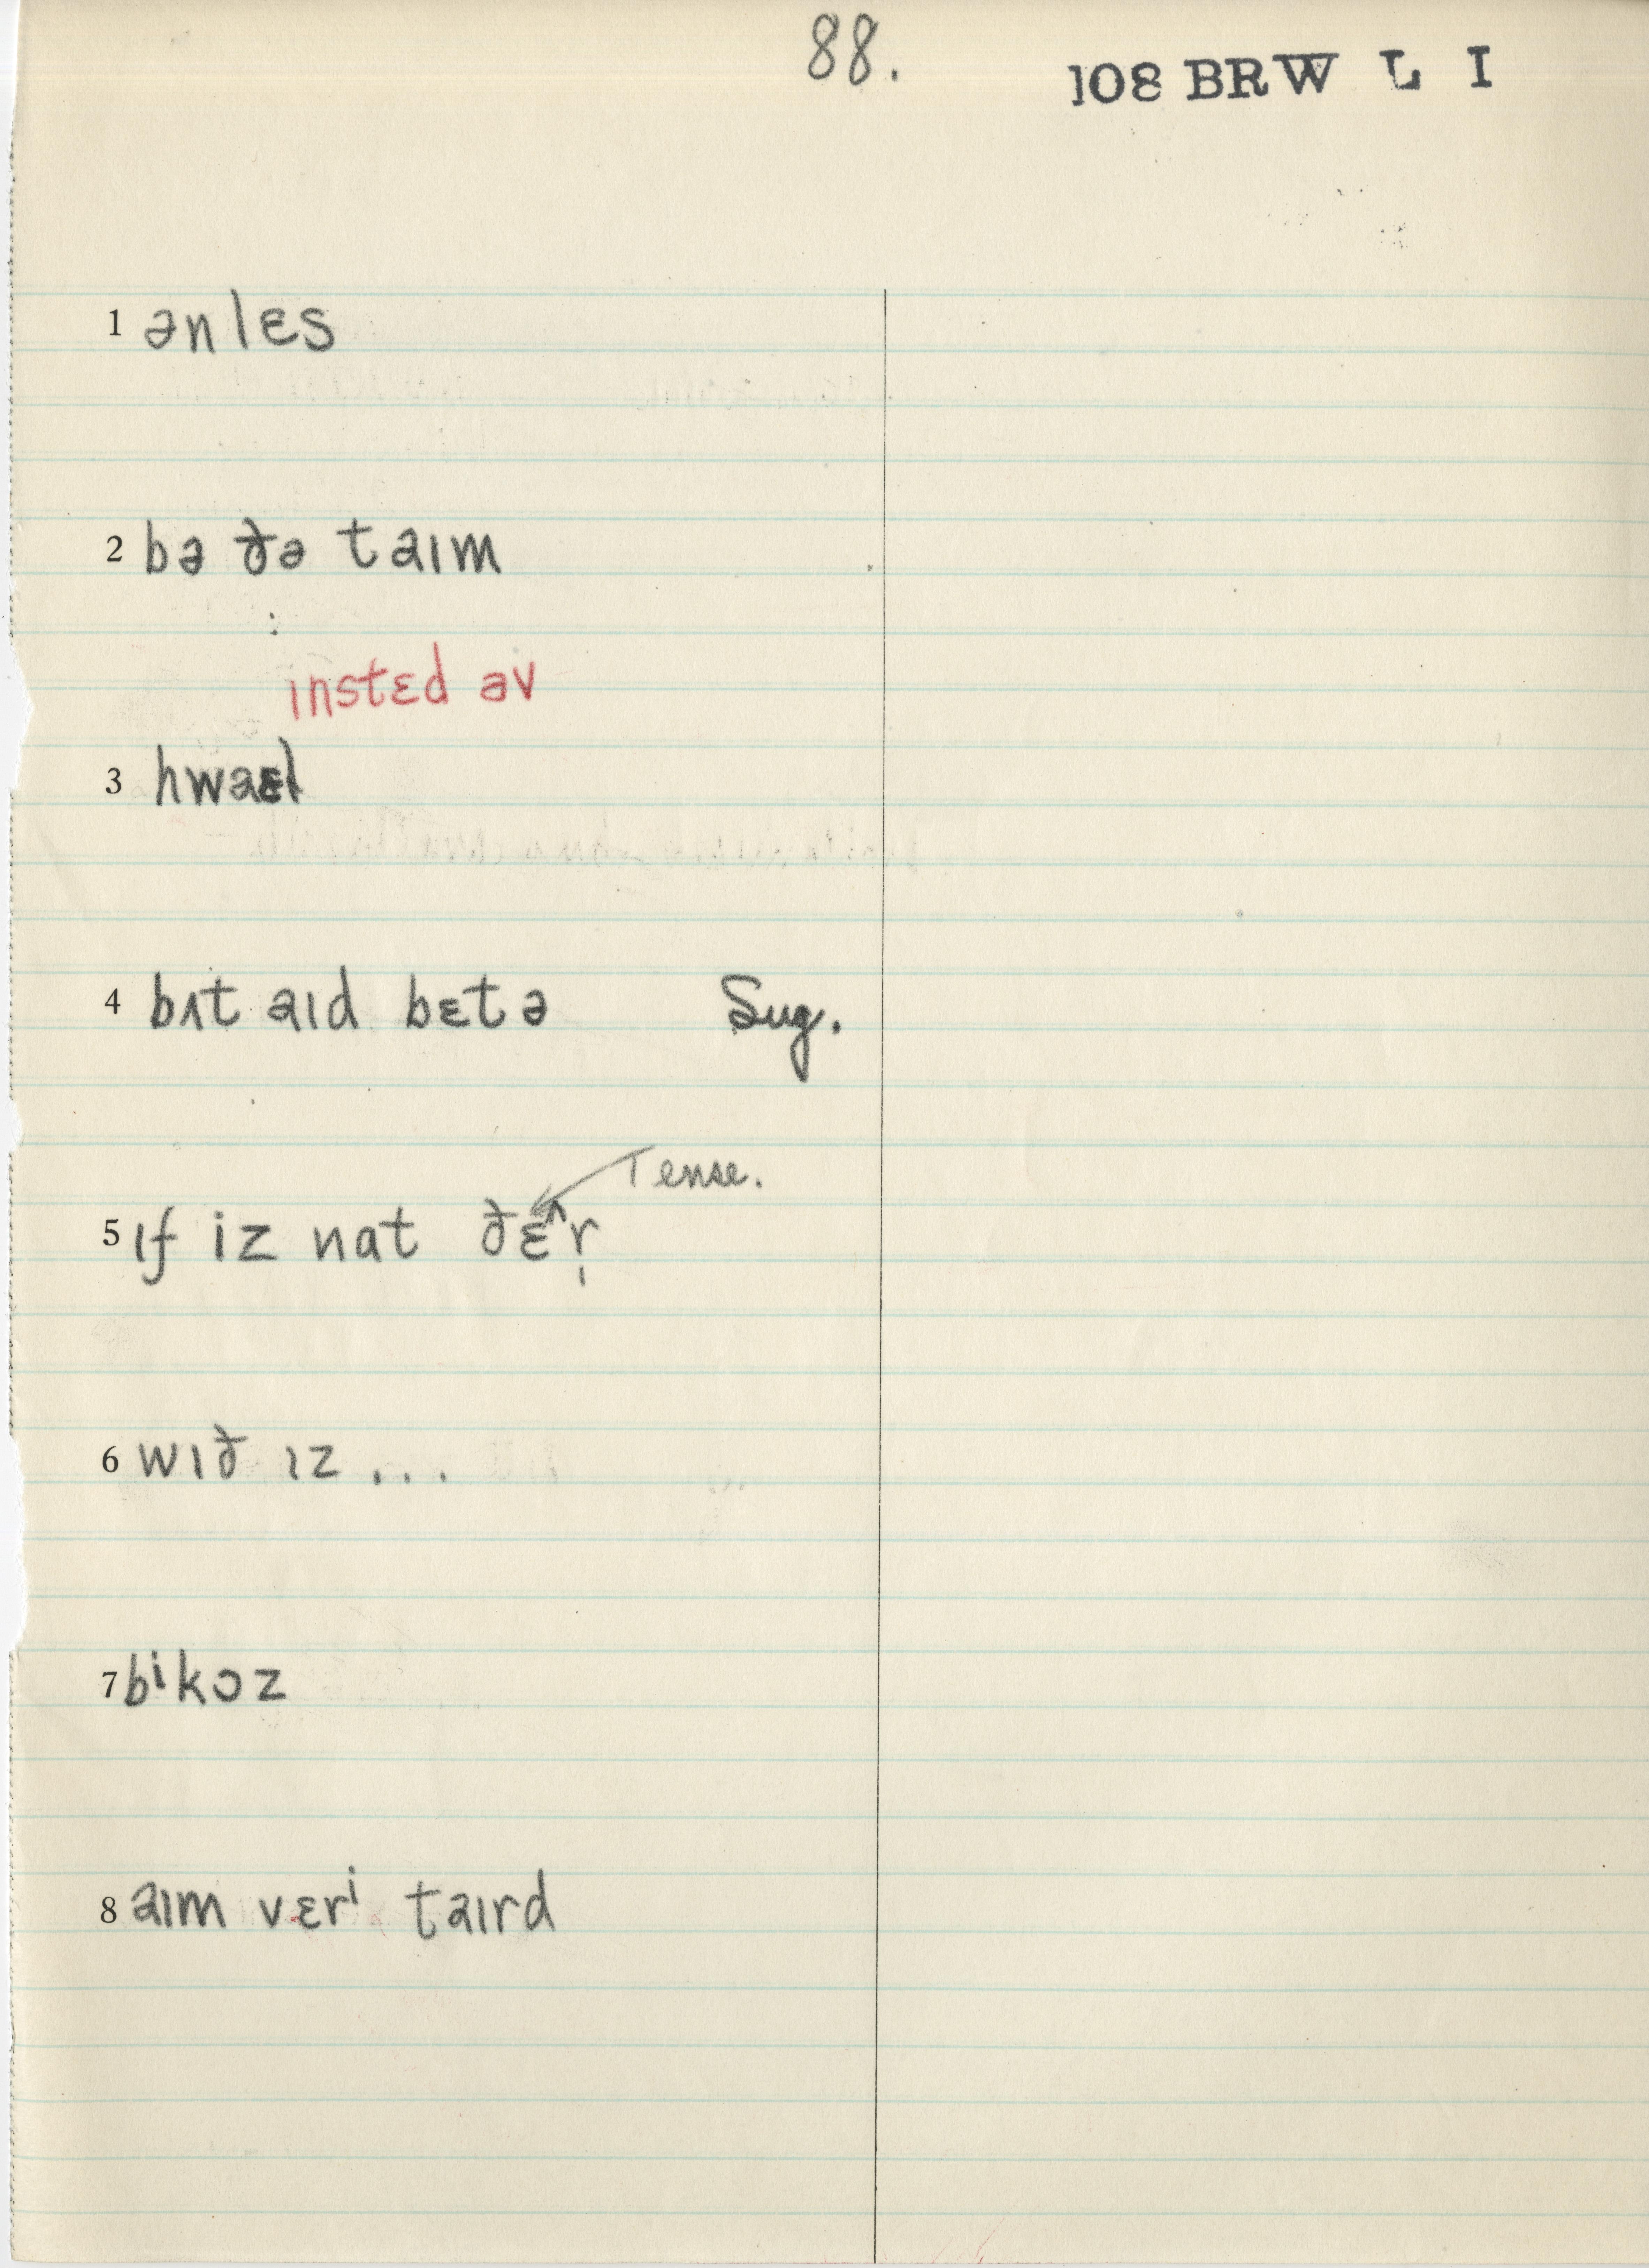 88.
108 BRW L I
1 ənlɛs
2 bə ðə taɪm
ɪnstɛd əv
3 hwaɛl
4 bʌt aɪd bɛtə Sug.
Tense.
5 ɪf iz nat ðɛ^r̩
6 wɪð ɪz ...
7 bⁱkɔz
8 aɪm vɛrⁱ taɪrd